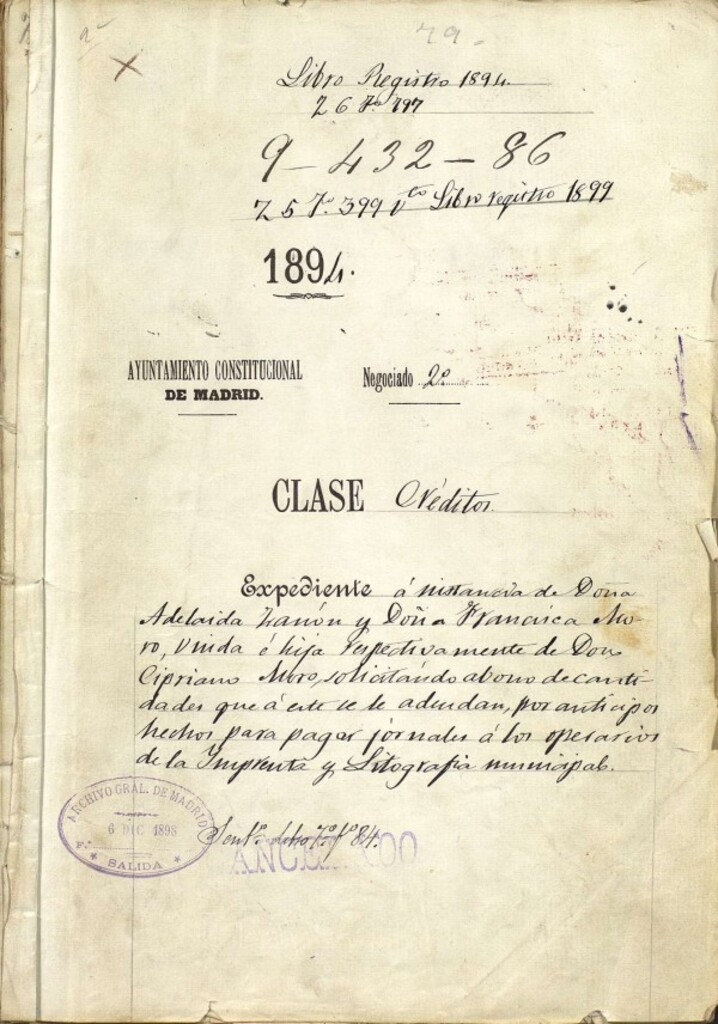 79.
Libro Registro 1894.
Z 6 Fº 797
9-432-86
Z 5 Fº 399 vto Libro registro 1899
1894.
AYUNTAMIENTO CONSTITUCIONAL
DE MADRID.
Negociado 2º
CLASE Créditos.
Expediente á instancia de Doña
Adelaida Zanón y Doña Francisca Mo-
ro, viuda é hija respectivamente de Don
Cipriano Moro, solicitando abono de canti-
dades que á este se le adeudan, por anticipos
hechos para pagar jornales á los operarios
de la Imprenta y Litografía municipal.
ARCHIVO GRAL. DE MADRID
6 DIC 1898
SALIDA
fº 84.